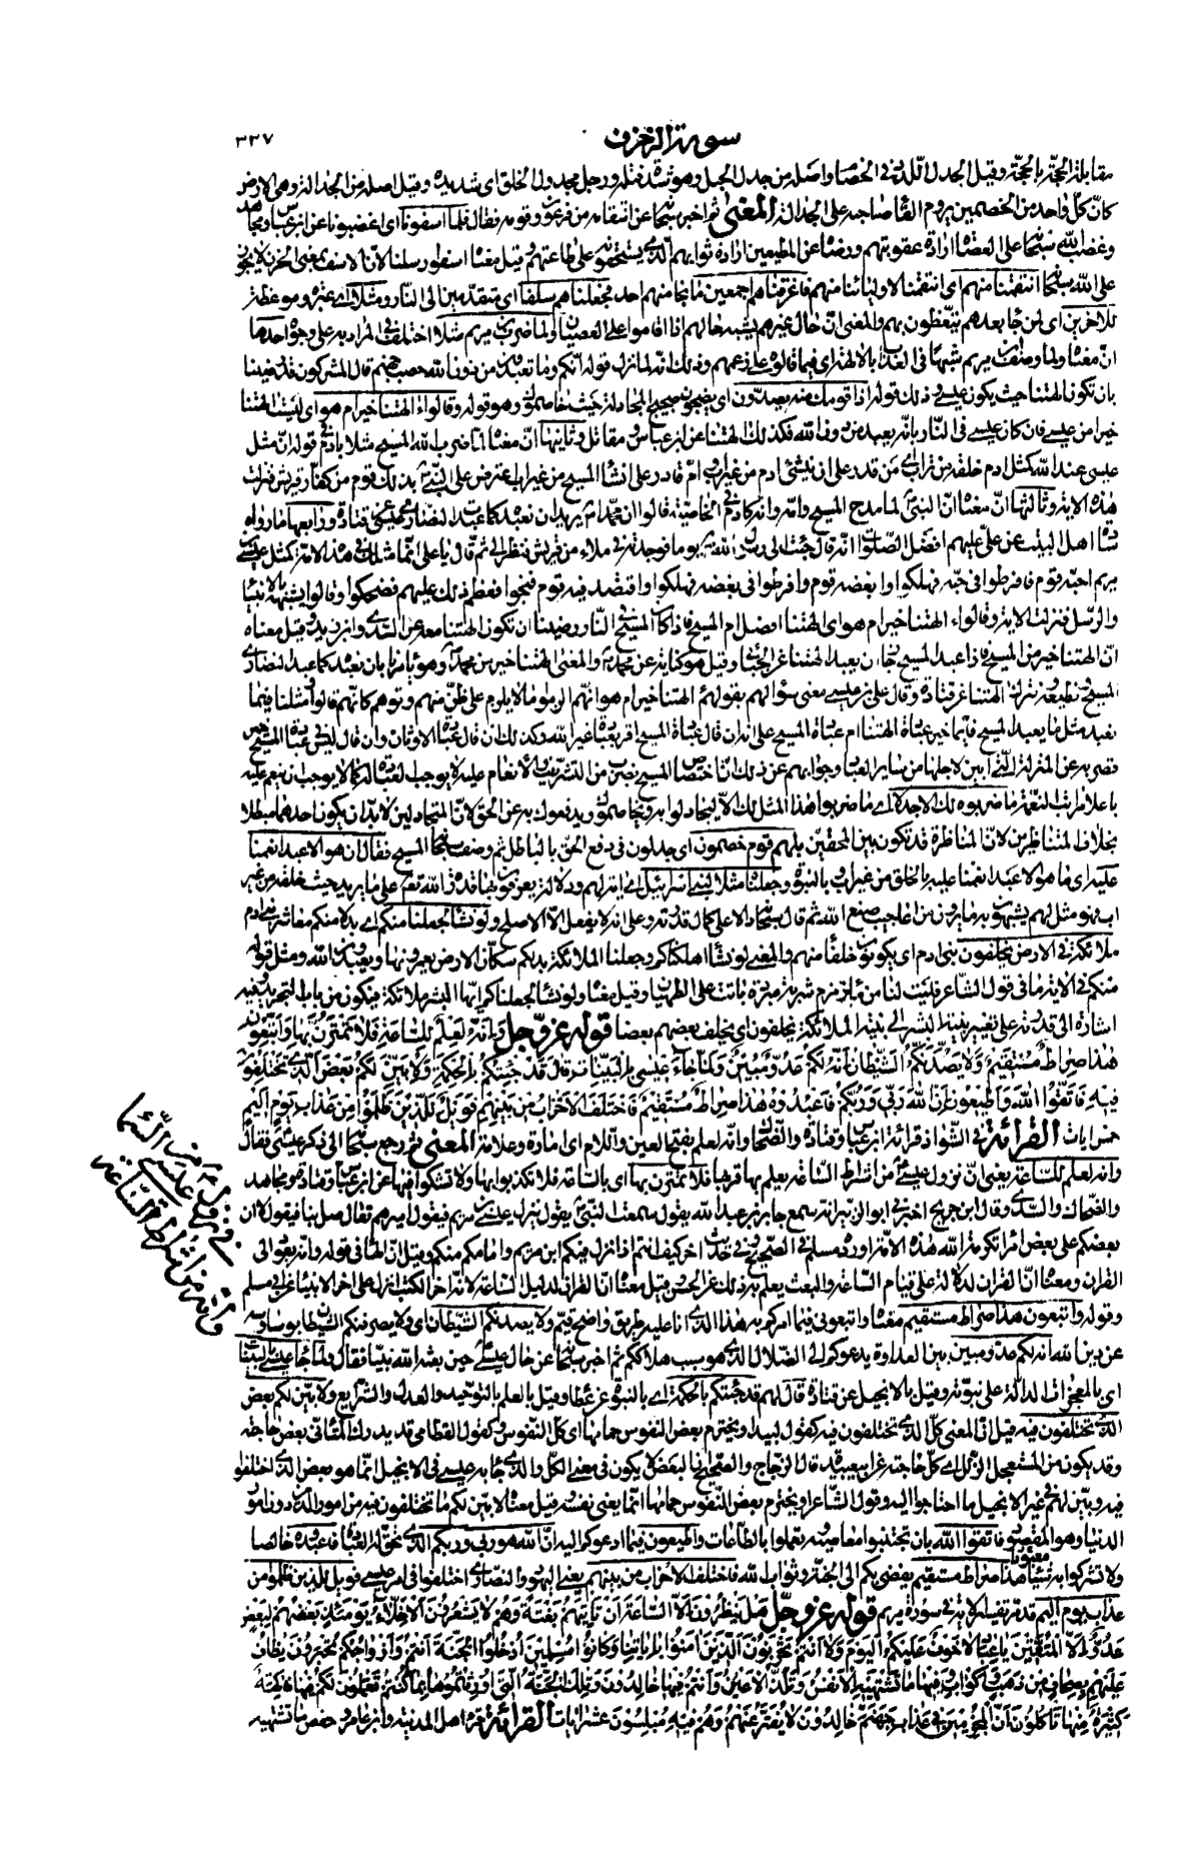 سورة الزخرف
٣٣٧
مقابلة الحجة بالحجة وقيل الجدل اللدد في الخصام واصله من جدل الحبل وهو شدة فتله ورجل مجدول الخلق اى شديده وقيل اصله من الجدالة وهى الارض
كان كل واحد من الخصمين يروم القاء صاحبه على الجدالة المعنى ثم اخبر سبحانه عن انتقامه من فرعون وقومه فقال فلما اسفونا اى اغضبونا عن ابن عباس ومجاهد
وغضب الله سبحانه على العصاة ارادة عقوبتهم ورضاه عن المطيعين ارادة ثوابهم الذى يستحقونه على طاعتهم وقيل معناه اسفوا رسلنا لان الاسف بمعنى الحزن لا يجوز
على الله سبحانه انتقمنا منهم اى انتقمنا لاوليائنا منهم فاغرقناهم اجمعين ما نجا منهم احد فجعلناهم سلفا اى متقدمين الى النار ومثلا اى عبرة وموعظة
للاخرين اى لمن جاء بعدهم يتعظون بهم والمعنى ان حال غيرهم يشبه حالهم اذا اقاموا على العصيان ولما ضرب ابن مريم مثلا اختلف فى المراد به على وجوه احدها
ان معناه ولما وصف ابن مريم شبها فى العذاب بالالهة اى فيما قالوه على زعمهم وذلك انه لما نزل قوله انكم وما تعبدون من دون الله حصب جهنم قال المشركون قد رضينا
بان تكون الهتنا حيث يكون عيسى وذلك قوله اذا قومك منه يصدون اى يضجون ضجيج المجادلة حيث خاصموك وهو قوله وقالوا ءالهتنا خير ام هو اى ليست الهتنا
خيرا من عيسى فان كان عيسى فى النار بانه يعبد من دون الله فكذلك الهتنا عن ابن عباس ومقاتل وثانيها ان معناه لما ضرب الله المسيح مثلا بادم فى قوله ان مثل
عيسى عند الله كمثل ادم خلقه من تراب اى من قدر على ان ينشئ ادم من غير اب وام قادر على انشاء المسيح من غير اب اعترض على النبى بذلك قوم من كفار قريش فنزلت
هذه الاية وثالثها ان معناه ان النبى لما مدح المسيح وامه وانه كادم فى الخاصية قالوا ان محمدا يريد ان نعبده كما عبدت النصارى عيسى عن قتادة ورابعها ما رواه
سادة اهل البيت عن على عليهم افضل الصلوات انه قال جئت الى رسول الله يوما فوجدته فى ملاء من قريش فنظر الى ثم قال يا على انما مثلك فى هذه الامة كمثل عيسى بن
مريم احبه قوم فافرطوا فى حبه فهلكوا وابغضه قوم وافرطوا فى بغضه فهلكوا واقتصد فيه قوم فنجوا فعظم ذلك عليهم فضحكوا وقالوا يشبهه بالانبياء
والرسل فنزلت الاية وقالوا ءالهتنا خير ام هو اى الهتنا افضل ام المسيح فاذا كان المسيح فى النار رضينا ان تكون الهتنا معه عن السدى وابن زيد وقيل معناه
ان الهتنا خير من المسيح فاذا عبد المسيح جاز ان يعبد الهتنا عن الجبائى وقيل هو كناية عن محمد والمعنى ءالهتنا خير من محمد وهو يأمرنا بان نعبده كما عبد النصارى
المسيح ونطيعه ونترك الهتنا عن قتادة وقال على بن عيسى معنى سؤالهم بقولهم ءالهتنا خير ام هو انهم الزموا ما لا يلزم على ظن منهم وتوهم كانهم قالوا ومثلنا فيما
نعبد مثل ما يعبد المسيح فايما خير عبادة الهتنا ام عبادة المسيح على انه ان قال عبادة المسيح اقر بعبادة غير الله وكذلك ان قال عبادة الاوثان وان قال ليس فى عبادة المسيح خير
قصر به عن المنزلة التى ابين لاجلها من سائر العباد وجوابهم عن ذلك ان اختصاص المسيح بضرب من التشريف والانعام عليه لا يوجب العبادة له كما لا يوجب ان ينعم عليه
باعلى مراتب النعمة ما ضربوه لك الا جدلا اى ما ضربوا هذا المثل لك الا ليجادلوا به ويخاصموك ويدفعوك به عن الحق لان المتجادلين لا بد ان يكون احدهما مبطلا
بخلاف المتناظرين لان المناظرة قد تكون بين المحقين بل هم قوم خصمون اى جدلون فى دفع الحق بالباطل ثم وصف سبحانه المسيح فقال ان هو الا عبد انعمنا
عليه اى ما هو الا عبد انعمنا عليه بالخلق من غير اب وبالنبوة وجعلناه مثلا لبنى اسرائيل اى اية لهم ودلالة يعرفون بها قدرة الله تعالى على ما يريد حيث خلقه من غير
اب فهو مثل لهم يشبهون به ما يرون من اعاجيب صنع الله ثم قال سبحانه دالا على كمال قدرته وعلى انه لا يفعل الا الاصلح ولو نشاء لجعلنا منكم اى بدلا منكم معاشر بنى ادم
ملائكة فى الارض يخلفون بنى ادم اى يكونون خلفا منهم والمعنى لو نشاء اهلكناكم وجعلنا الملائكة بدلكم سكان الارض يعمرونها ويعبدون الله ومثل قوله
منكم فى الاية ما فى قول الشاعر فليت لنا من ماء زمزم شربة مبردة باتت على الطهيان وقيل معناه ولو نشاء لجعلناكم ايها البشر ملائكة فيكون من باب التجريد وفيه
اشارة الى قدرته على تغيير بنية البشر الى بنية الملائكة يخلفون اى يخلف بعضهم بعضا قوله عز وجل وَاِنَّهُ لَعِلْمٌ لِلسّاعَةِ فَلا تَمْتَرُنَّ بِها وَاتَّبِعُونِ
هٰذا صِراطٌ مُسْتَقِيمٌ وَلا يَصُدَّنَّكُمُ الشَّيْطانُ اِنَّهُ لَكُمْ عَدُوٌّ مُبِينٌ وَلَمّا جاءَ عِيسى بِالْبَيِّناتِ قالَ قَدْ جِئْتُكُمْ بِالْحِكْمَةِ وَلِاُبَيِّنَ لَكُمْ بَعْضَ الَّذِى تَخْتَلِفُونَ
فِيهِ فَاتَّقُوا اللهَ وَاَطِيعُونِ اِنَّ اللهَ هُوَ رَبِّى وَرَبُّكُمْ فَاعْبُدُوهُ هٰذا صِراطٌ مُسْتَقِيمٌ فَاخْتَلَفَ الْاَحْزابُ مِنْ بَيْنِهِمْ فَوَيْلٌ لِلَّذِينَ ظَلَمُوا مِنْ عَذابِ يَوْمٍ اَلِيمٍ
خمس ايات القرائة فى الشواذ قرائة ابن عباس وقتادة والضحاك وانه لعلم بفتح العين واللام اى امارة وعلامة المعنى ثم رجع سبحانه الى ذكر عيسى فقال
وانه لعلم للساعة يعنى ان نزول عيسى من اشراط الساعة يعلم بها قربها فلا تمترن بها اى بالساعة فلا تكذبوا بها ولا تشكوا فيها عن ابن عباس وقتادة ومجاهد
والضحاك والسدى وقال ابن جريج اخبرنى ابو الزبير انه سمع جابر بن عبد الله يقول سمعت النبى يقول ينزل عيسى بن مريم فيقول اميرهم تعال صل بنا فيقول لا ان
بعضكم على بعض امراء تكرمة من الله لهذه الامة اورده مسلم فى الصحيح وفى حديث اخر كيف انتم اذا نزل فيكم ابن مريم وامامكم منكم وقيل ان الهاء فى قوله وانه يعود الى
القران ومعناه ان القران لدلالة على قيام الساعة والبعث يعلم به ذلك عن الحسن وقيل معناه ان القران لدليل الساعة لانه اخر الكتب انزل على اخر الانبياء عن ابى مسلم
وقوله واتبعون هذا صراط مستقيم معناه واتبعونى فيما امركم به هذا الذى انا عليه طريق واضح قيم ولا يصدنكم الشيطان اى ولا يصرفنكم الشيطان بوساوسه
عن دين الله انه لكم عدو مبين بين العداوة يدعوكم الى الضلال الذى هو سبب هلاككم ثم اخبر سبحانه عن حال عيسى حين بعثه الله نبيا فقال ولما جاء عيسى بالبينات
اى بالمعجزات الدالة على نبوته وقيل بالانجيل عن قتادة قال لهم قد جئتكم بالحكمة اى بالنبوة عن عطا وقيل بالعلم بالتوحيد والعدل والشرايع ولابين لكم بعض
الذى تختلفون فيه قيل ان المعنى كل الذى تختلفون فيه كقول لبيد او يخترم بعض النفوس حمامها اى كل النفوس وكقول القطامى قد يدرك المتأنى بعض حاجته
وقد يكون من المستعجل الزلل اى كل حاجته عن ابى عبيدة قال الزجاج والصحيح ان البعض لا يكون فى معنى الكل والذى جاء به عيسى فى الانجيل انما هو بعض الذى اختلفوا
فيه وبين لهم فى غير الانجيل ما احتاجوا اليه وقول الشاعر او يخترم بعض النفوس حمامها انما يعنى نفسه وقيل معناه لابين لكم ما تختلفون فيه من امور الدين دون امور
الدنيا وهو المقصود فاتقوا الله بان تجتنبوا معاصيه وتعملوا بالطاعات واطيعون فيما ادعوكم اليه ان الله هو ربى وربكم الذى تحق له العبادة فاعبدوه خالصا
ولا تشركوا به شيئا هذا صراط مستقيم يفضى بكم الى الجنة وثواب الله فاختلف الاحزاب من بينهم يعنى اليهود والنصارى اختلفوا فى امر عيسى فويل للذين ظلموا من
عذاب يوم اليم قد مر تفسير الاية فى سورة مريم قوله عز وجل هَلْ يَنْظُرُونَ اِلَّا السّاعَةَ اَنْ تَأْتِيَهُمْ بَغْتَةً وَهُمْ لا يَشْعُرُونَ اَلْاَخِلّاءُ يَوْمَئِذٍ بَعْضُهُمْ لِبَعْضٍ
عَدُوٌّ اِلَّا الْمُتَّقِينَ يا عِبادِ لا خَوْفٌ عَلَيْكُمُ الْيَوْمَ وَلا اَنْتُمْ تَحْزَنُونَ اَلَّذِينَ اٰمَنُوا بِاٰياتِنا وَكانُوا مُسْلِمِينَ اُدْخُلُوا الْجَنَّةَ اَنْتُمْ وَاَزْواجُكُمْ تُحْبَرُونَ يُطافُ
عَلَيْهِمْ بِصِحافٍ مِنْ ذَهَبٍ وَاَكْوابٍ وَفِيها ما تَشْتَهِيهِ الْاَنْفُسُ وَتَلَذُّ الْاَعْيُنُ وَاَنْتُمْ فِيها خالِدُونَ وَتِلْكَ الْجَنَّةُ الَّتِى اُورِثْتُمُوها بِما كُنْتُمْ تَعْمَلُونَ لَكُمْ فِيها فاكِهَةٌ
كَثِيرَةٌ مِنْها تَأْكُلُونَ اِنَّ الْمُجْرِمِينَ فِى عَذابِ جَهَنَّمَ خالِدُونَ لا يُفَتَّرُ عَنْهُمْ وَهُمْ فِيهِ مُبْلِسُونَ عشر ايات القرائة قرء اهل المدينة وابن عامر وحفص ما تشتهيه
فى نزول عيسى من السماء
وانه من اشراط الساعة